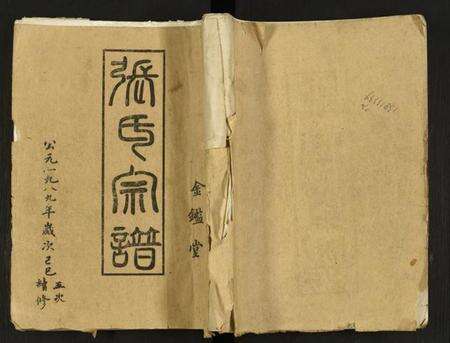 張氏宗譜
公元一九八九年歲次己巳
五次
續修
金鑑堂